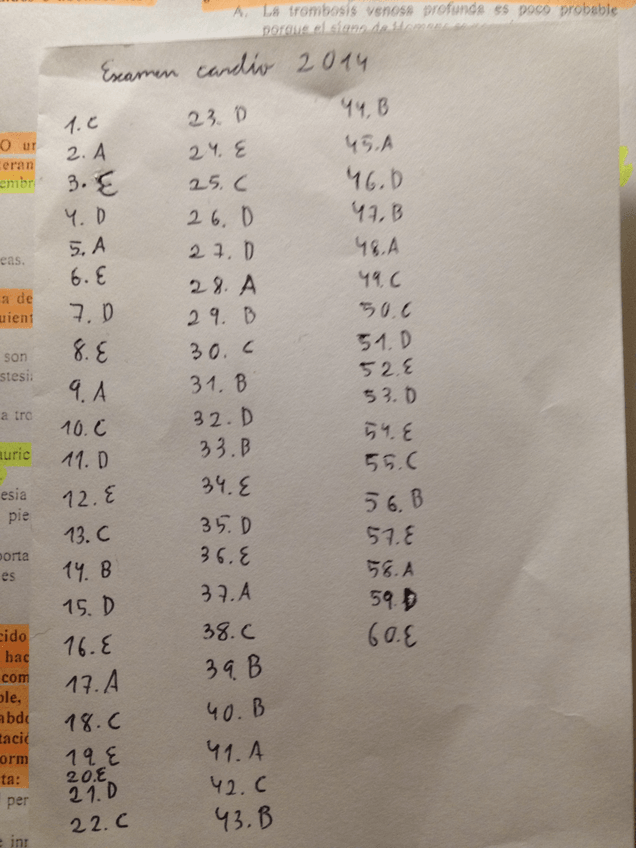 A. La trombosis venosa profunda es poco probable
porque el signo de
Examen cardio 2014
1. C
2. A
3. E
4. D
5. A
6. E
7. D
8. E
9. A
10. C
11. D
12. E
13. C
14. B
15. D
16. E
17. A
18. C
19. E
20. E
21. D
22. C
23. D
24. E
25. C
26. D
27. D
28. A
29. B
30. C
31. B
32. D
33. B
34. E
35. D
36. E
37. A
38. C
39. B
40. B
41. A
42. C
43. B
44. B
45. A
46. D
47. B
48. A
49. C
50. C
51. D
52. E
53. D
54. E
55. C
56. B
57. E
58. A
59. D
60. E
O un
teran
embr
eas.
a de
uient
son
stesi
a tro
auric
esia
pie
porta
es
cido
hac
com
ble,
abdo
tació
orm
ta:
per
e inr